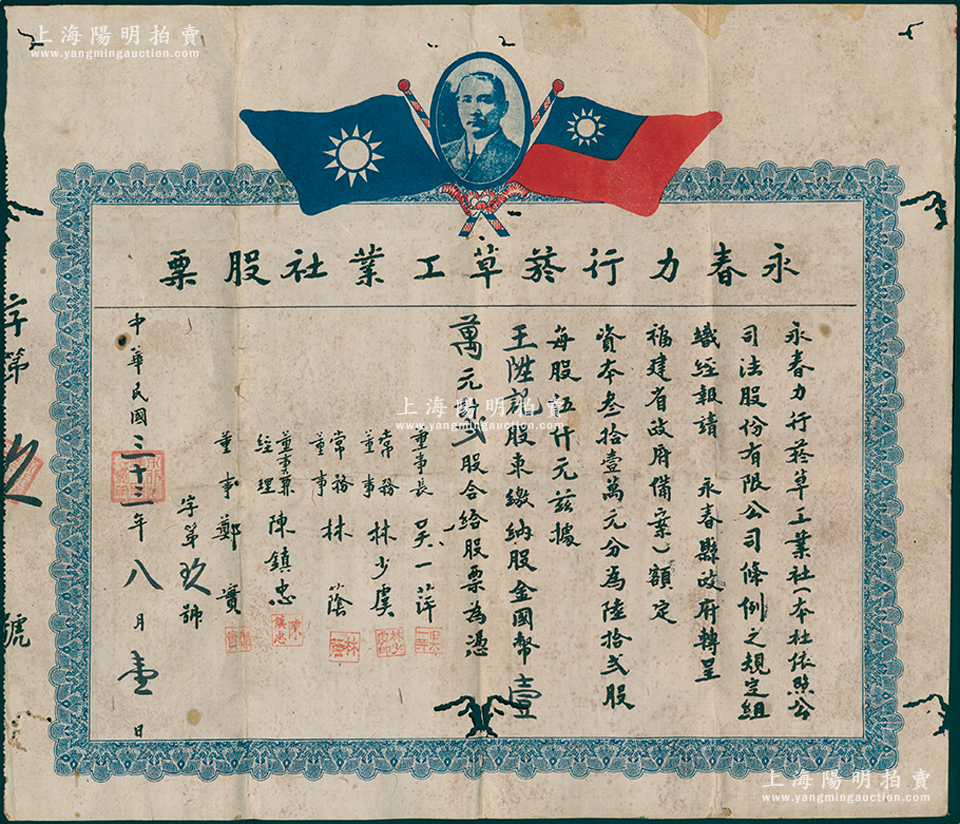 上海陽明拍賣
www.yangmingauction.com
永春力行菸草工業社股票
永春力行菸草工業社(本社依照公
司法股份有限公司條例之規定組
織經報請 永春縣政府轉呈
福建省政府備案)額定
資本叁拾壹萬元分為陸拾弍股
每股伍仟元茲據
王陞說股東繳納股金國幣壹
萬元計弍股合給股票為憑
董事長 吳一萍
常務董事 林少虞
常務董事 林蔭
董事兼經理 陳鎮忠
董事 鄭實
字第玖號
中華民國三十三年八月壹日
字第
玖
號
上海陽明拍賣
www.yangmingauction.com
上海陽明拍賣
www.yangmingauction.com